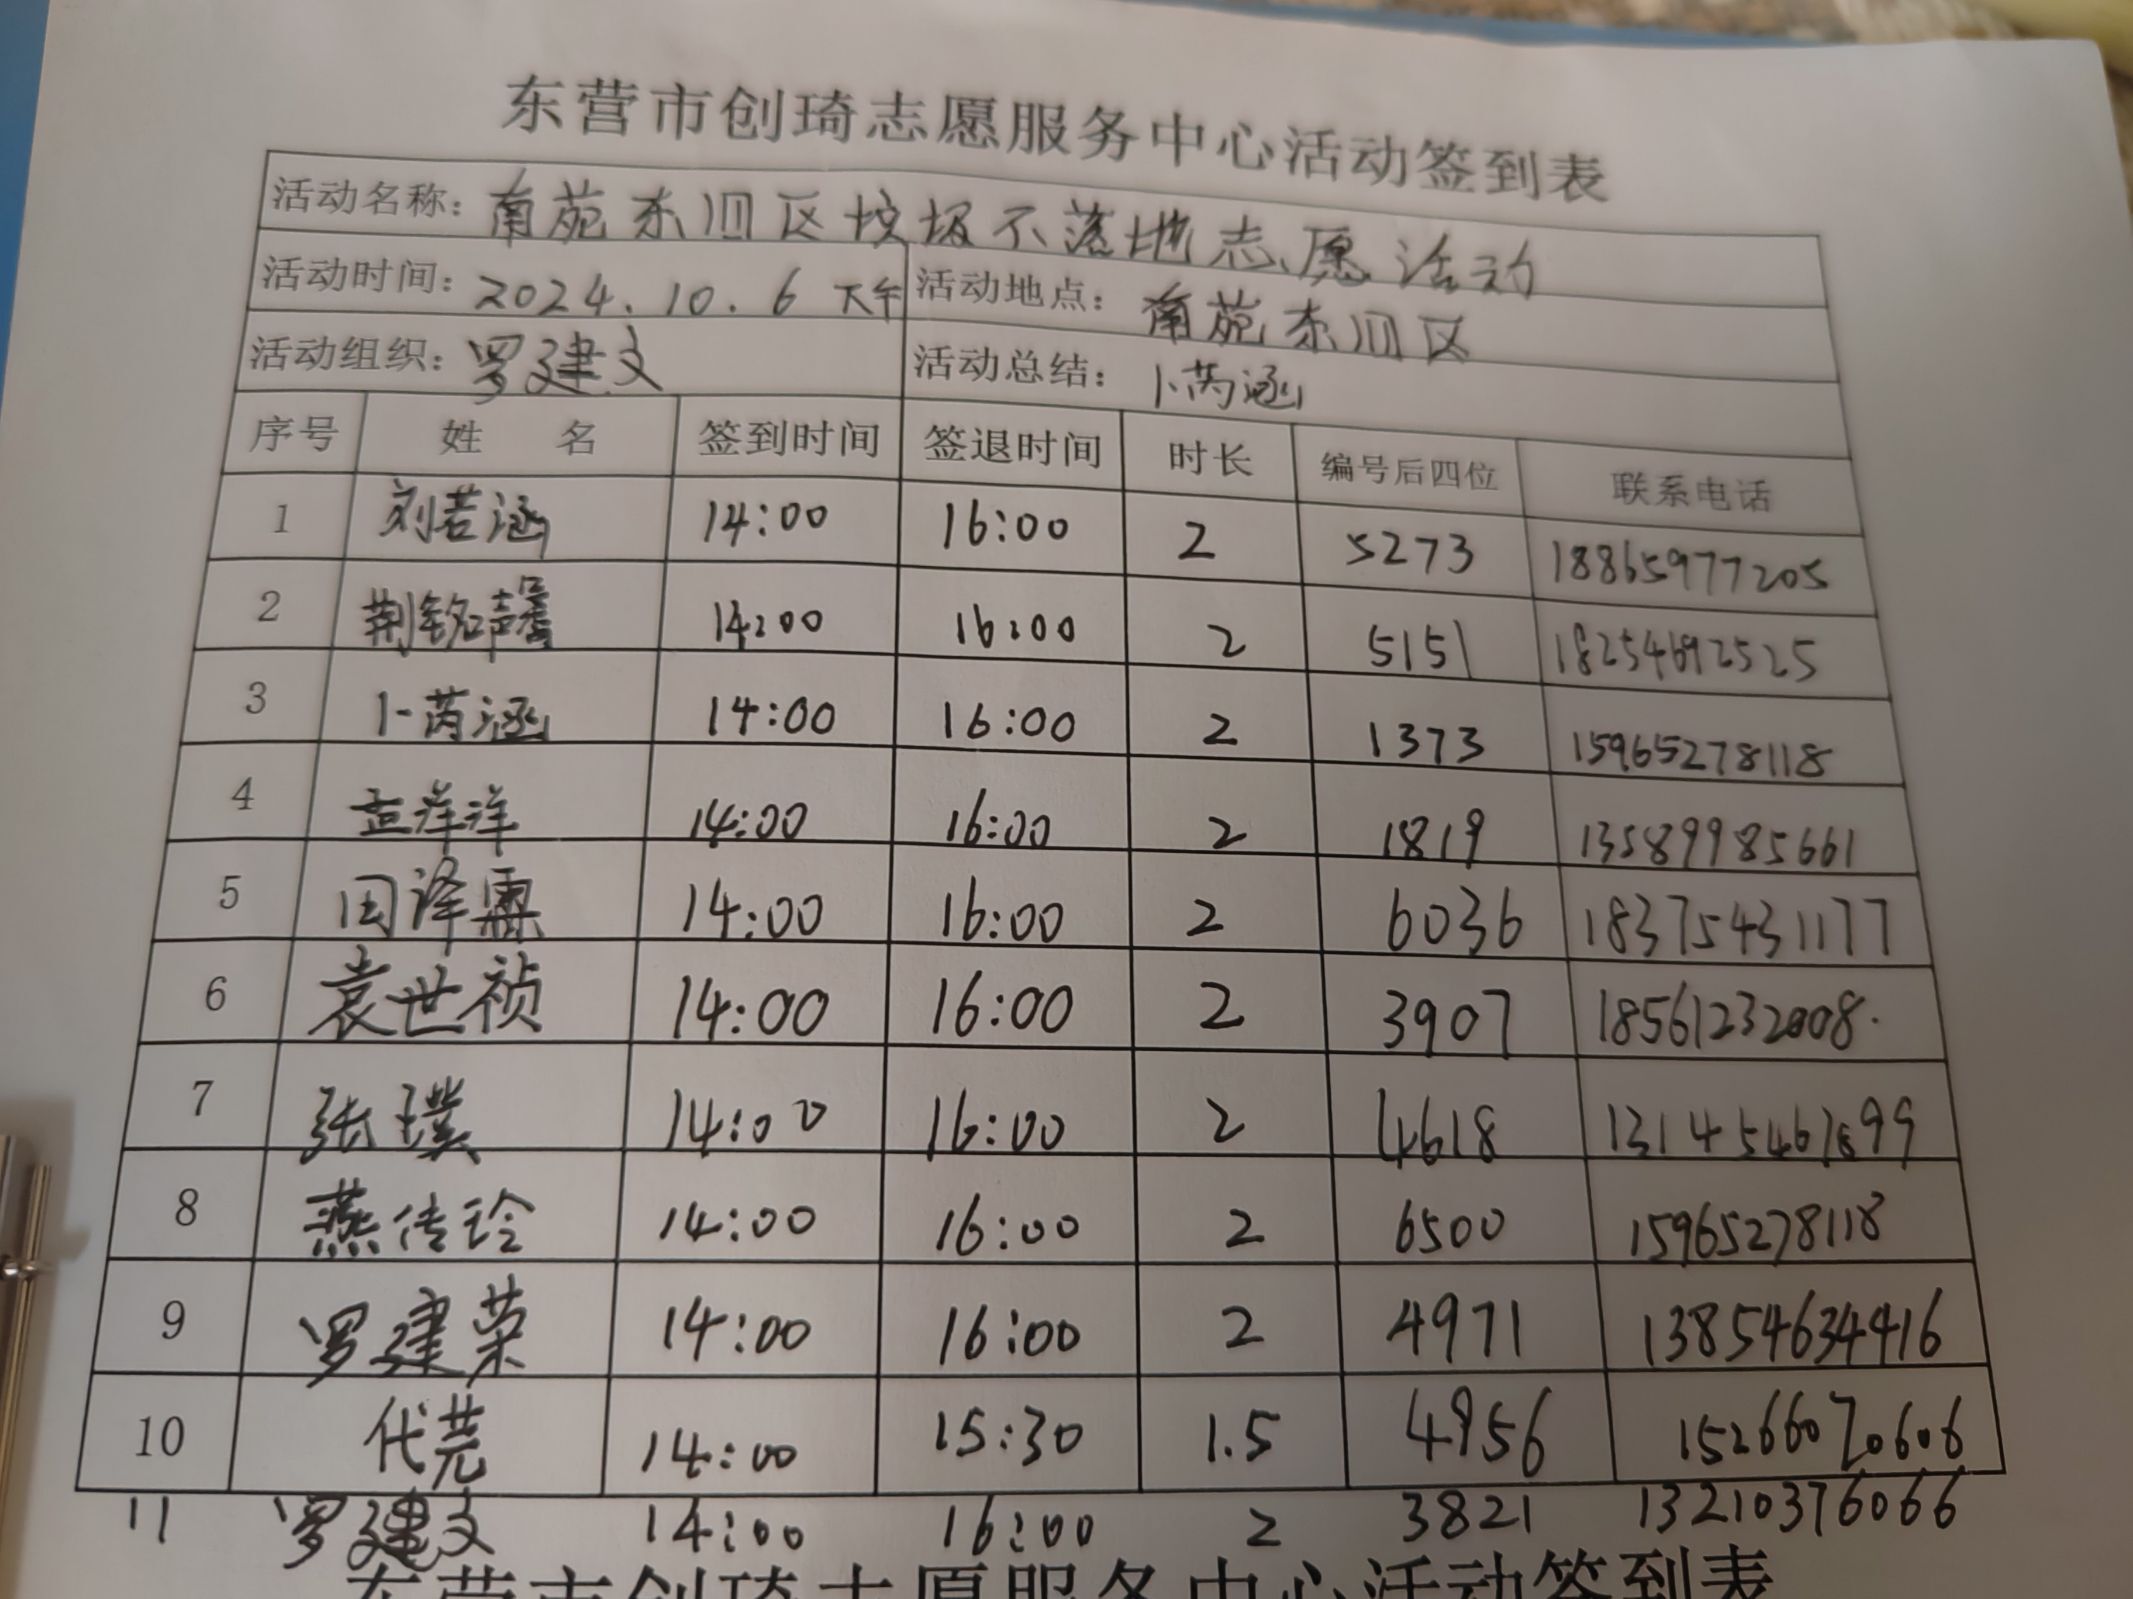 东营市创琦志愿服务中心活动签到表
活动名称：南苑东川区垃圾不落地志愿活动
活动时间：2024.10.6 下午 活动地点：南苑东川区
活动组织：罗建文 活动总结：卜芮涵
序号 姓 名 签到时间 签退时间 时长 编号后四位 联系电话
1 刘若涵 14:00 16:00 2 5273 18865977205
2 荆铭馨 14:00 16:00 2 5151 18254692525
3 卜芮涵 14:00 16:00 2 1373 15965278118
4 洋洋 14:00 16:00 2 1819 13589985661
5 田泽霖 14:00 16:00 2 6036 18375431177
6 袁世祯 14:00 16:00 2 3907 18561232008.
7 张璞 14:00 16:00 2 4618 13145467899
8 燕传玲 14:00 16:00 2 6500 15965278118
9 罗建荣 14:00 16:00 2 4971 13854634416
10 代芫 14:00 15:30 1.5 4956 15266070606
11 罗建文 14:00 16:00 2 3821 13210376066
东营市创琦志愿服务中心活动签到表